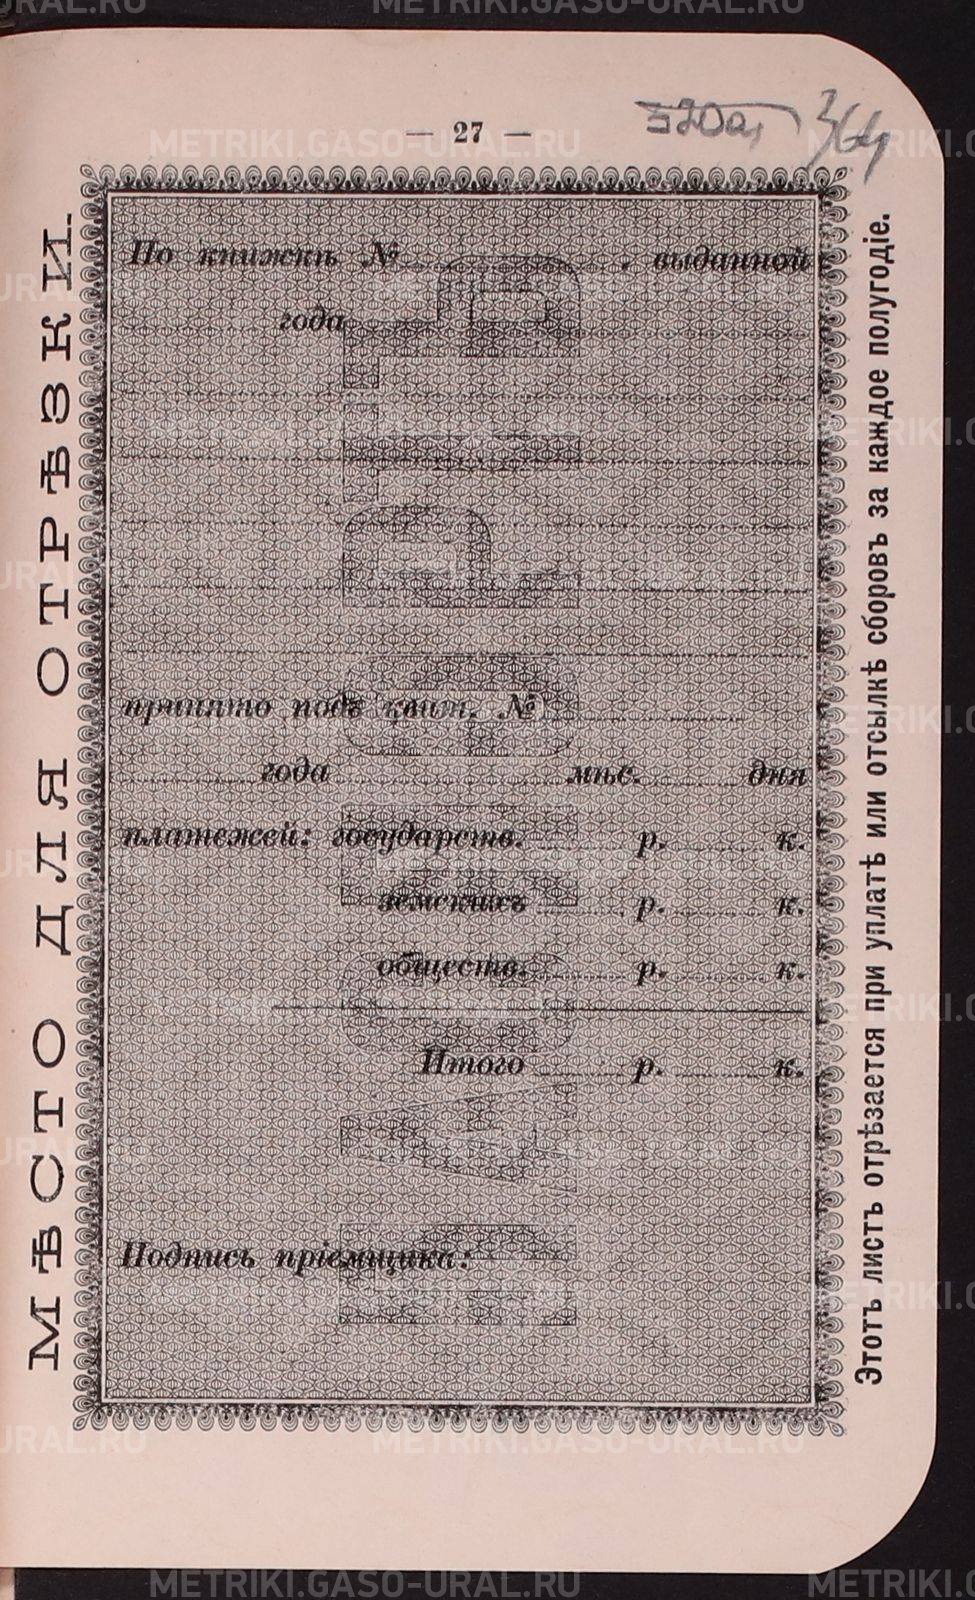 — 27 —
364
МѢСТО ДЛЯ ОТРѢЗКИ.
По книжкѣ № , выданной
года
принято подъ квит. №
года мѣс. дня
платежей: государств. р. к.
земскихъ р. к.
обществ. р. к.
Итого р. к.
Подпись пріемщика:
ПАСПОРТЪ
Этотъ листъ отрѣзается при уплатѣ или отсылкѣ сборовъ за каждое полугодіе.
METRIKI.GASO-URAL.RU